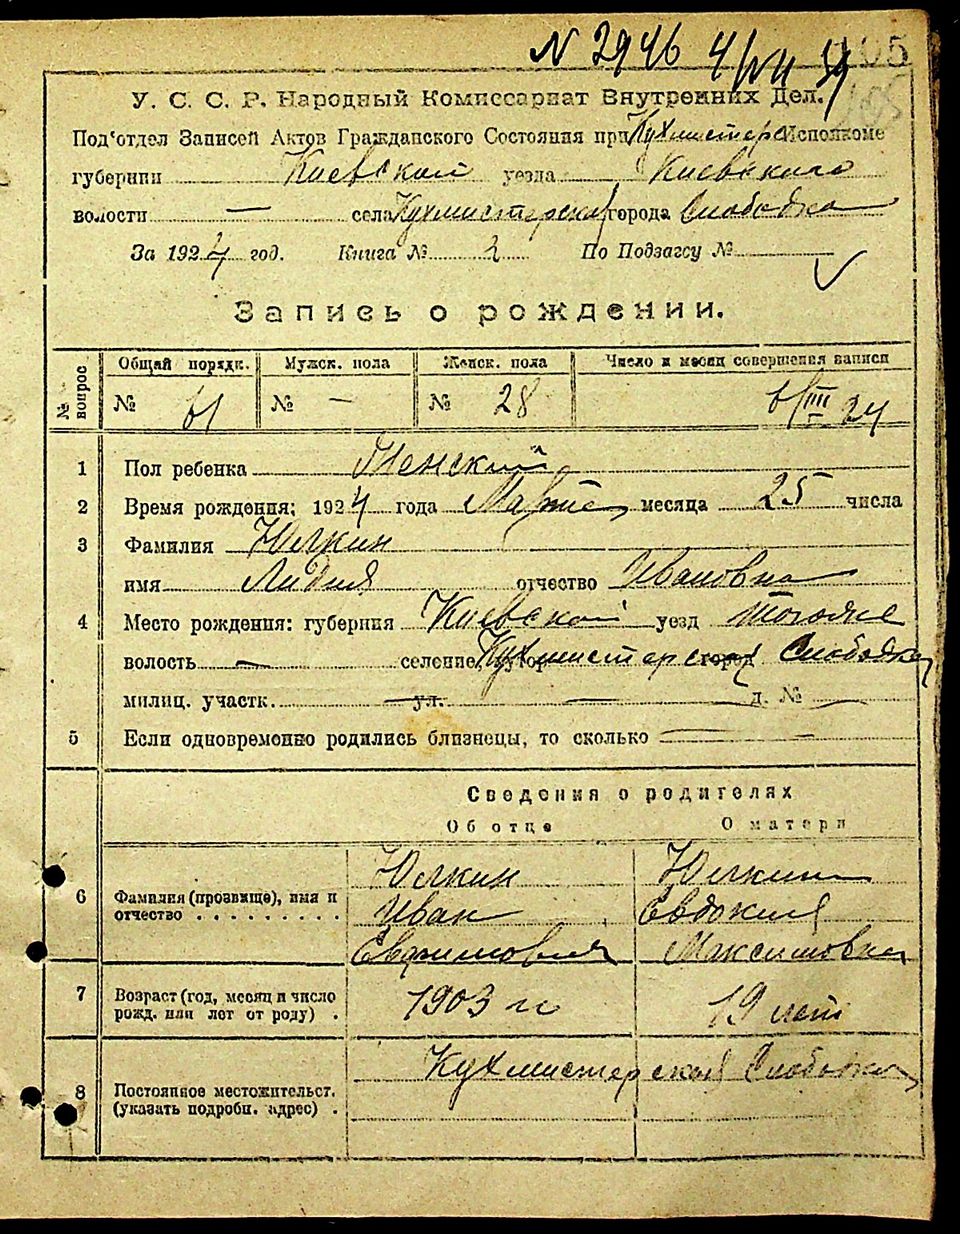 N 2946 4/VII 59
105
У. С. С. Р. Народный Комиссариат Внутренних Дел.
Под'отдел Записей Актов Гражданского Состояния при Кухмистерс Исполкоме
губернии Киевской уезда Киевского
волости — села Кухмистерская города Слободка
За 1924 год. Книга № 2 По Подзагсу №
Запись о рождении.
№ вопрос Общий порядк. Мужск. пола Женск. пола Число и месяц совершения записи
№ 61 № — № 28 6/III 24
1 Пол ребенка Женский
2 Время рождения: 1924 года Марта месяца 25 числа
3 Фамилия Юлкин
имя Лидия отчество Ивановна
4 Место рождения: губерния Киевской уезд тогоже
волость — селение, хутор город Кухмистерская Слободка
милиц. участк. — ул. — д. № —
5 Если одновременно родились близнецы, то сколько —
Сведения о родителях
Об отце О матери
6 Фамилия (прозвище), имя и отчество . . . . . . . . .
Юлкин Юлкина
Иван Евдокия
Евфимович Максимовна
7 Возраст (год, месяц и число рожд. или лет от роду) . 1903 г 19 лет
8 Постоянное местожительст. (указать подробн. адрес) . Кухмистерская Слободка